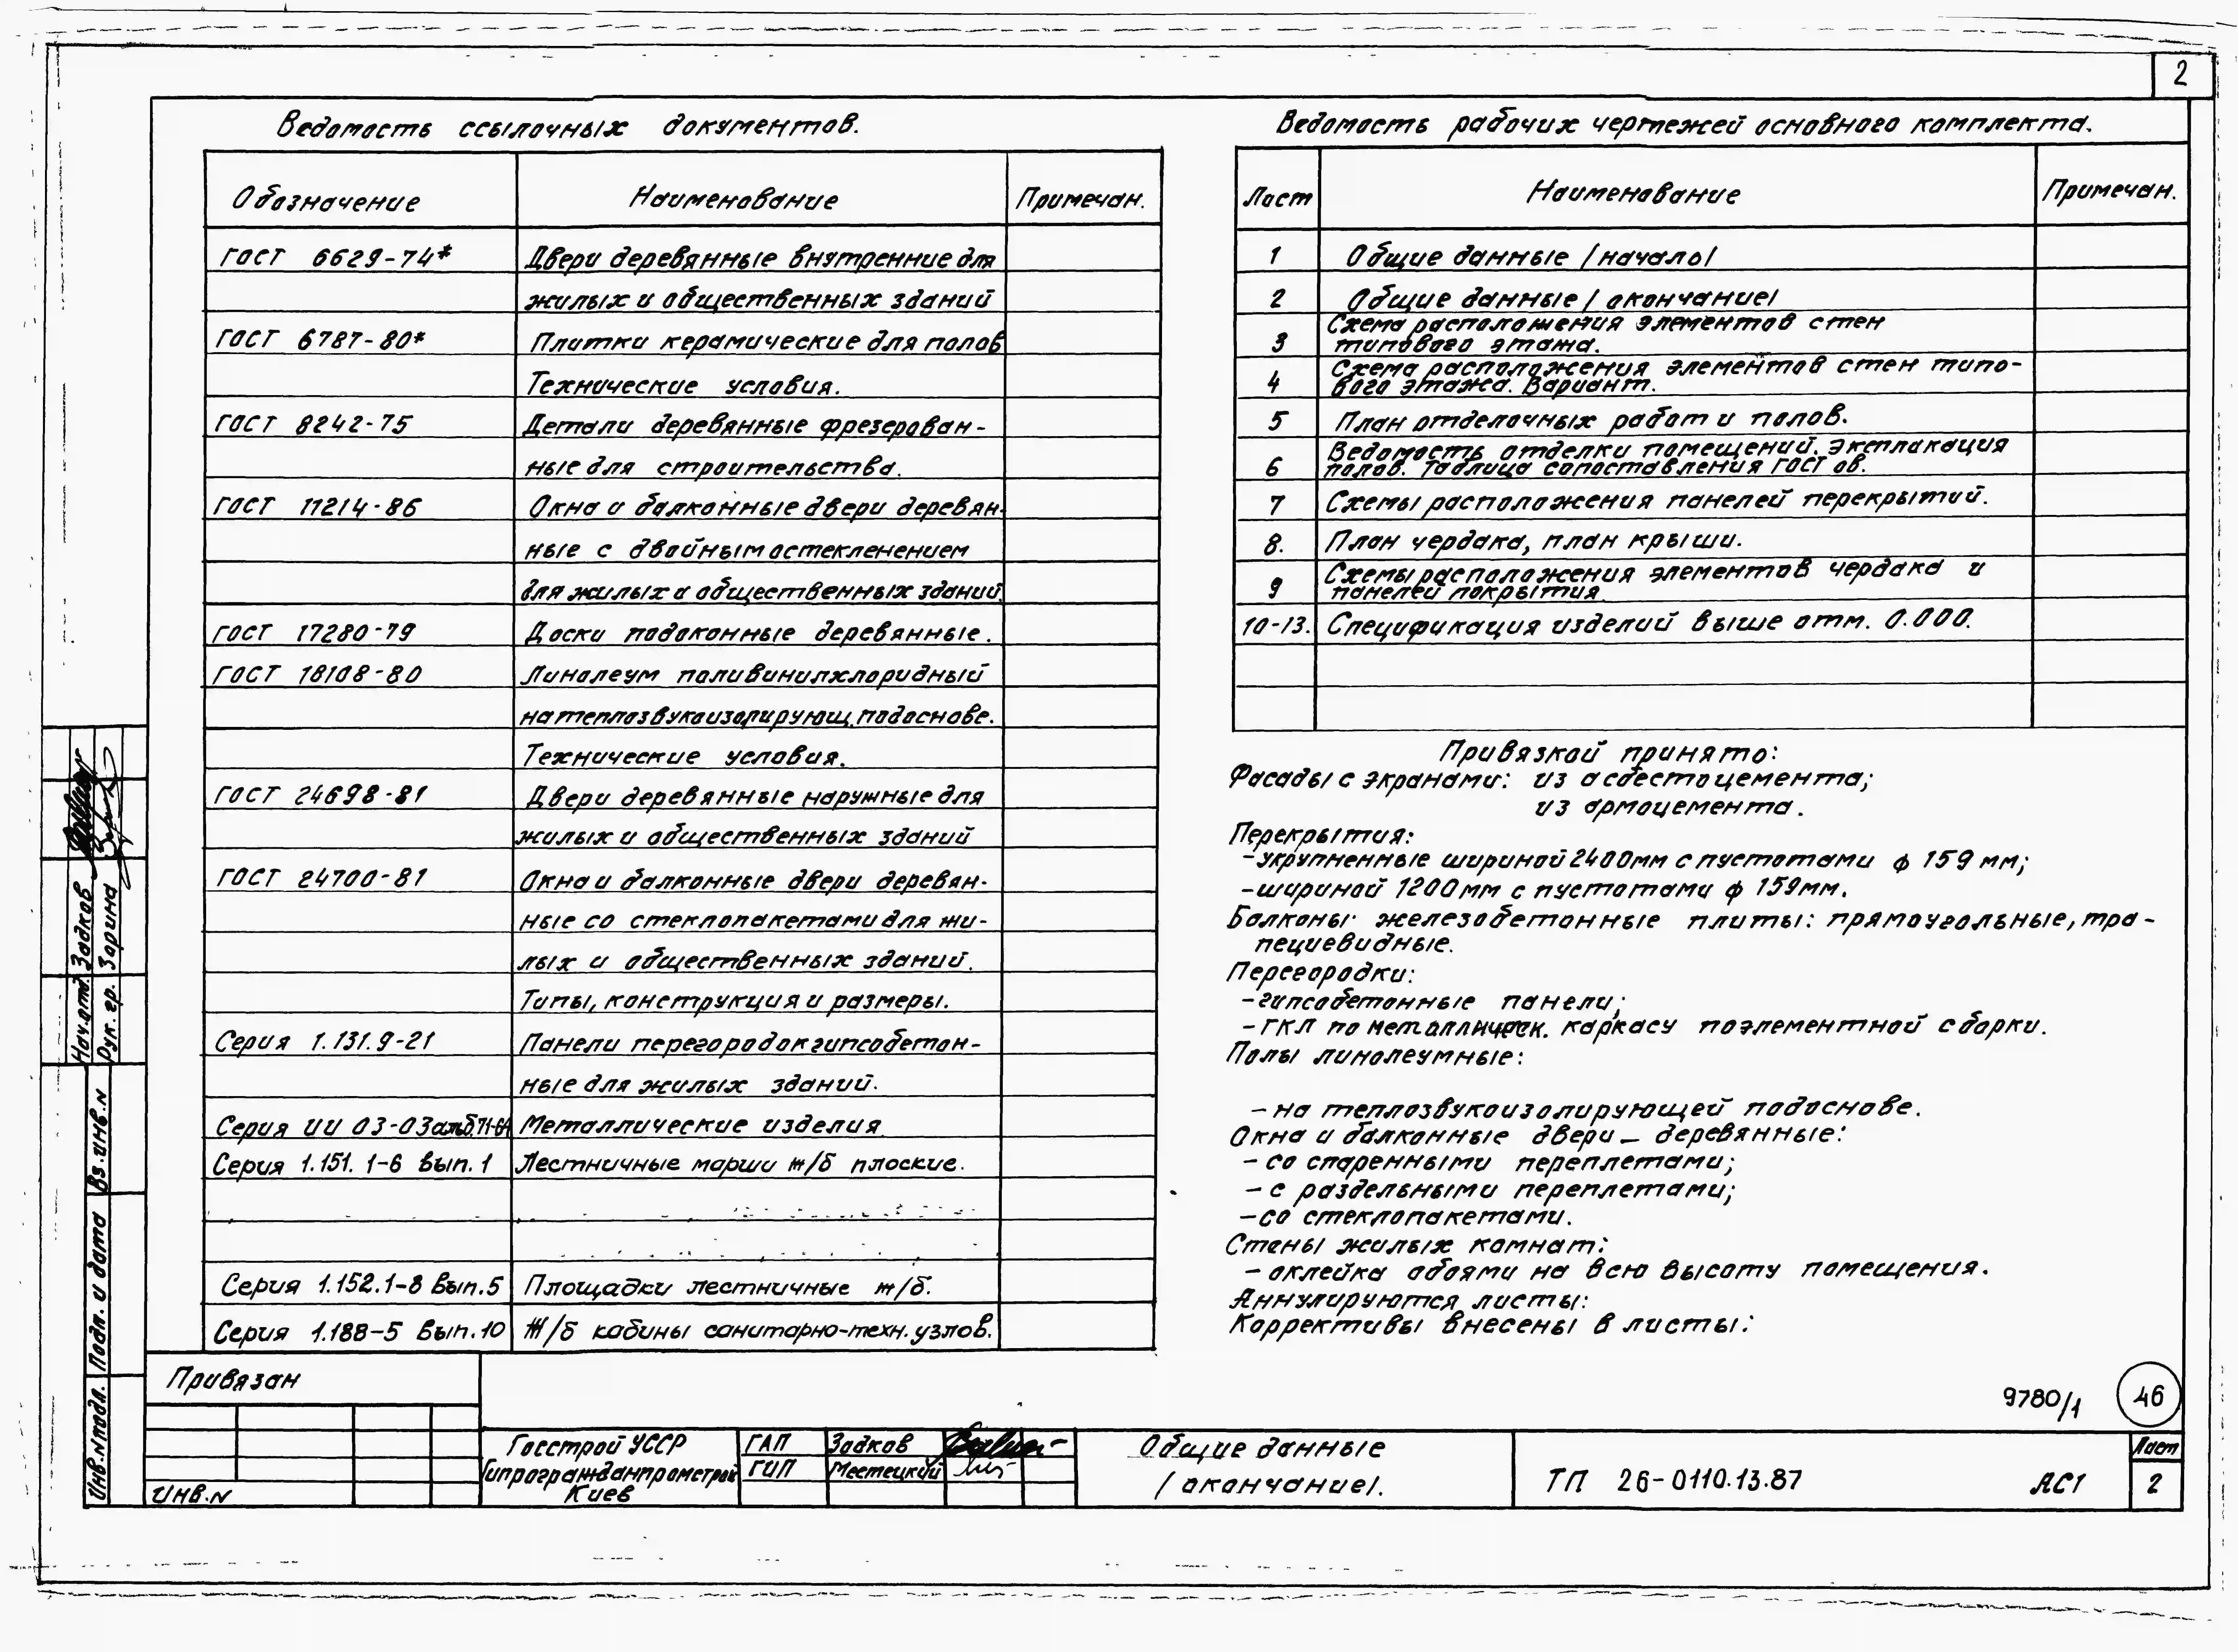 2
Ведомость ссылочных документов.
Обозначение Наименование Примечан.
ГОСТ 6629-74* Двери деревянные внутренние для
жилых и общественных зданий
ГОСТ 6787-80* Плитки керамические для полов
Технические условия.
ГОСТ 8242-75 Детали деревянные фрезерован-
ные для строительства.
ГОСТ 11214-86 Окна и балконные двери деревян-
ные с двойным остекленением
для жилых и общественных зданий.
ГОСТ 17280-79 Доски подоконные деревянные.
ГОСТ 18108-80 Линолеум поливинилхлоридный
на теплозвукоизолирующ. подоснове.
Технические условия.
ГОСТ 24698-81 Двери деревянные наружные для
жилых и общественных зданий
ГОСТ 24700-81 Окна и балконные двери деревян-
ные со стеклопакетами для жи-
лых и общественных зданий.
Типы, конструкция и размеры.
Серия 1.131.9-21 Панели перегородок гипсобетон-
ные для жилых зданий.
Серия ИИ 03-03 альб.71-64 Металлические изделия
Серия 1.151.1-6 вып.1 Лестничные марши ж/б плоские.
Серия 1.152.1-8 вып.5 Площадки лестничные ж/б.
Серия 1.188-5 вып.10 Ж/б кабины санитарно-техн. узлов.
Ведомость рабочих чертежей основного комплекта.
Лист Наименование Примечан.
1 Общие данные /начало/
2 Общие данные /окончание/
3 Схема расположения элементов стен
типового этажа.
4 Схема расположения элементов стен типо-
вого этажа. Вариант.
5 План отделочных работ и полов.
6 Ведомость отделки помещений. Экспликация
полов. Таблица сопоставления ГОСТов.
7 Схемы расположения панелей перекрытий.
8. План чердака, план крыши.
9 Схемы расположения элементов чердака и
панелей покрытия
10-13. Спецификация изделий выше отм. 0.000.
Привязкой принято:
Фасады с экранами: из асбестоцемента;
из армоцемента.
Перекрытия:
-укрупненные шириной 2400мм с пустотами ф 159 мм;
-шириной 1200мм с пустотами ф 159мм.
Балконы: железобетонные плиты: прямоугольные, тра-
пециевидные.
Перегородки:
-гипсобетонные панели;
-ГКЛ по металлическ. каркасу поэлементной сборки.
Полы линолеумные:
-на теплозвукоизолирующей подоснове.
Окна и балконные двери - деревянные:
- со спаренными переплетами;
- с раздельными переплетами;
-со стеклопакетами.
Стены жилых комнат:
- оклейка обоями на всю высоту помещения.
Аннулируются листы:
Коррективы внесены в листы:
9780/1 46
Нач.отд. Задков
Рук. гр. Зорина
Вз.инв.N
Подп. и дата
Инв.Nподл.
Привязан
Инв.N
Госстрой УССР
Гипрогражданпромстрой
Киев
ГАП Задков
ГИП Местецкий
Общие данные
/окончание/.
ТП 26-0110.13.87 АС1
Лист
2